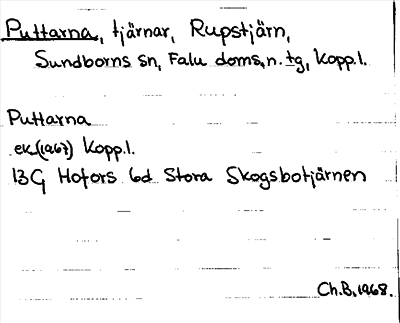 Puttarna, tjärnar, Rupstjärn,
Sundborns sn, Falu doms.n. tg, Kopp.l.
Puttarna
ek.(1967) Kopp.l.
13G Hofors 6d Stora Skogsbotjärnen
Ch.B. 1968.